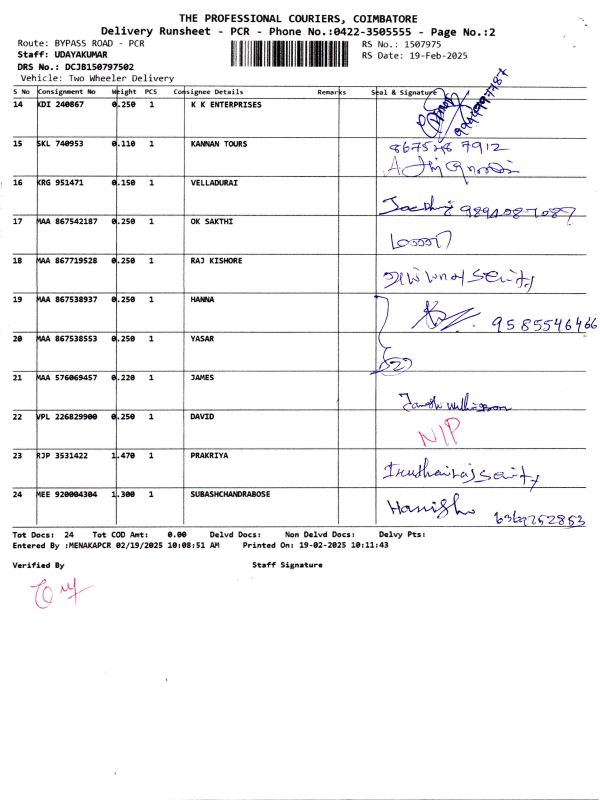 THE PROFESSIONAL COURIERS, COIMBATORE
Delivery Runsheet - PCR - Phone No.:0422-3505555 - Page No.:2
Route: BYPASS ROAD - PCR
RS No.: 1507975
Staff: UDAYAKUMAR
RS Date: 19-Feb-2025
DRS No.: DCJB150797502
Vehicle: Two Wheeler Delivery
S No Consignment No Weight PCS Consignee Details Remarks Seal & Signature
14 KDI 240867 0.250 1 K K ENTERPRISES
15 SKL 740953 0.110 1 KANNAN TOURS
16 KRG 951471 0.150 1 VELLADURAI
17 MAA 867542187 0.250 1 OK SAKTHI
18 MAA 867719528 0.250 1 RAJ KISHORE
19 MAA 867538937 0.250 1 HANNA 9585546466
20 MAA 867538553 0.250 1 YASAR
21 MAA 576069457 0.220 1 JAMES
22 VPL 226829900 0.250 1 DAVID N/P
23 RJP 3531422 1.470 1 PRAKRIYA
24 MEE 920004304 1.300 1 SUBASHCHANDRABOSE
Tot Docs: 24 Tot COD Amt: 0.00 Delvd Docs: Non Delvd Docs: Delvy Pts:
Entered By :MENAKAPCR 02/19/2025 10:08:51 AM Printed On: 19-02-2025 10:11:43
Verified By Staff Signature